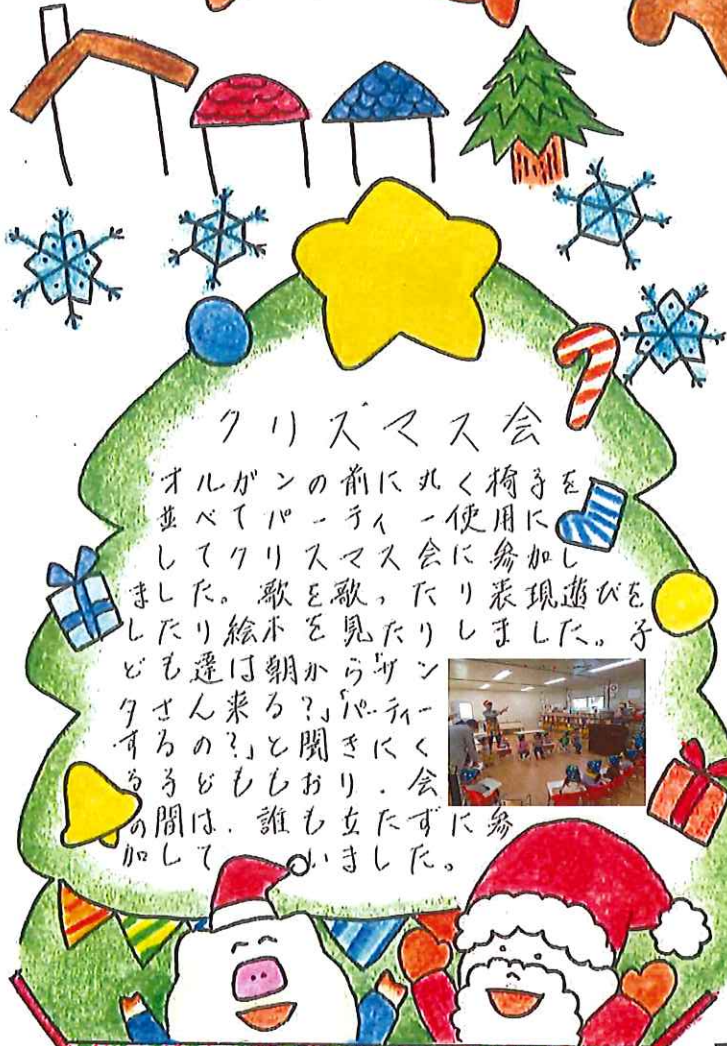 クリスマス会
オルガンの前に丸く椅子を
並べてパーティー使用に
してクリスマス会に参加し
ました。歌を歌ったり表現遊びを
したり絵本を見たりしました。子
ども達は朝から「サン
タさん来る?」「パーティー
するの?」と聞きにく
る子どももおり、会
の間は、誰も立たずに参
加して いました。